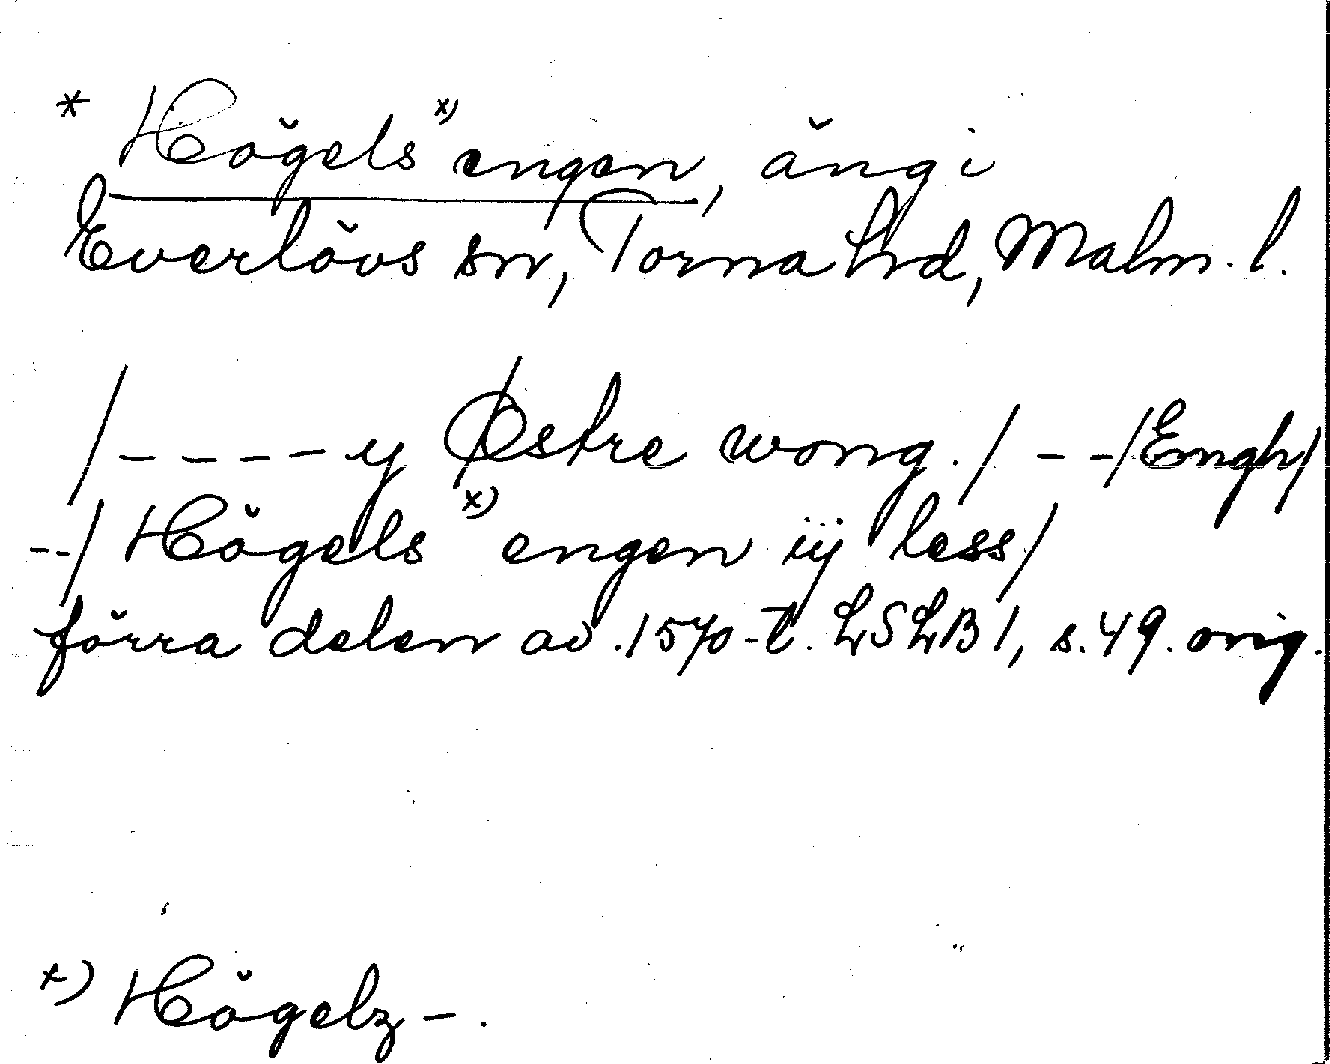 * Högels x) engen, äng i
Everlövs sn, Torna hrd, Malm. l.
/ - - - - y Østre wong. / - - /Engh/
- - / Högels x) engen iij less/
förra delen av 1570-t. LSLB 1, s. 49. orig.
x) Högelz - .